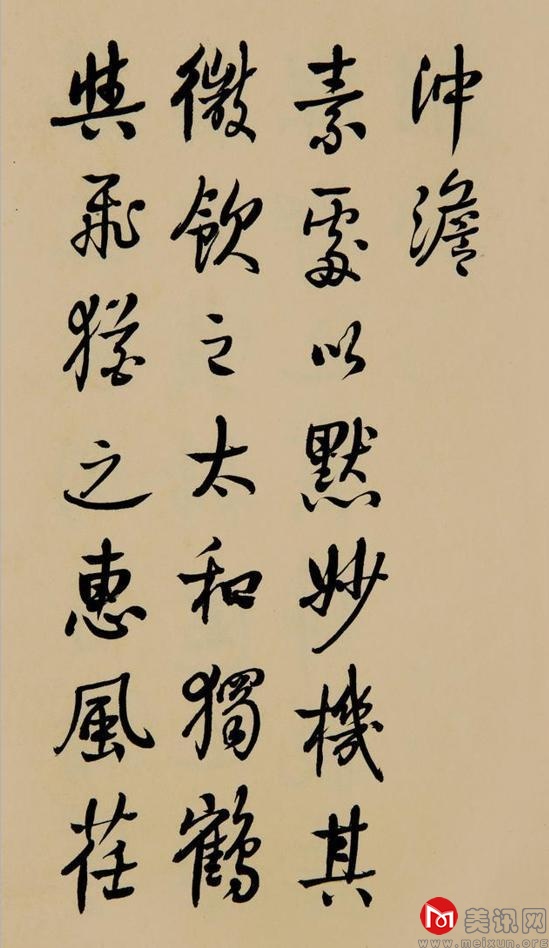 沖澹
素處以默妙機其
微飲之太和獨鶴
與飛猶之惠風荏
美讯网
www.meixun.org